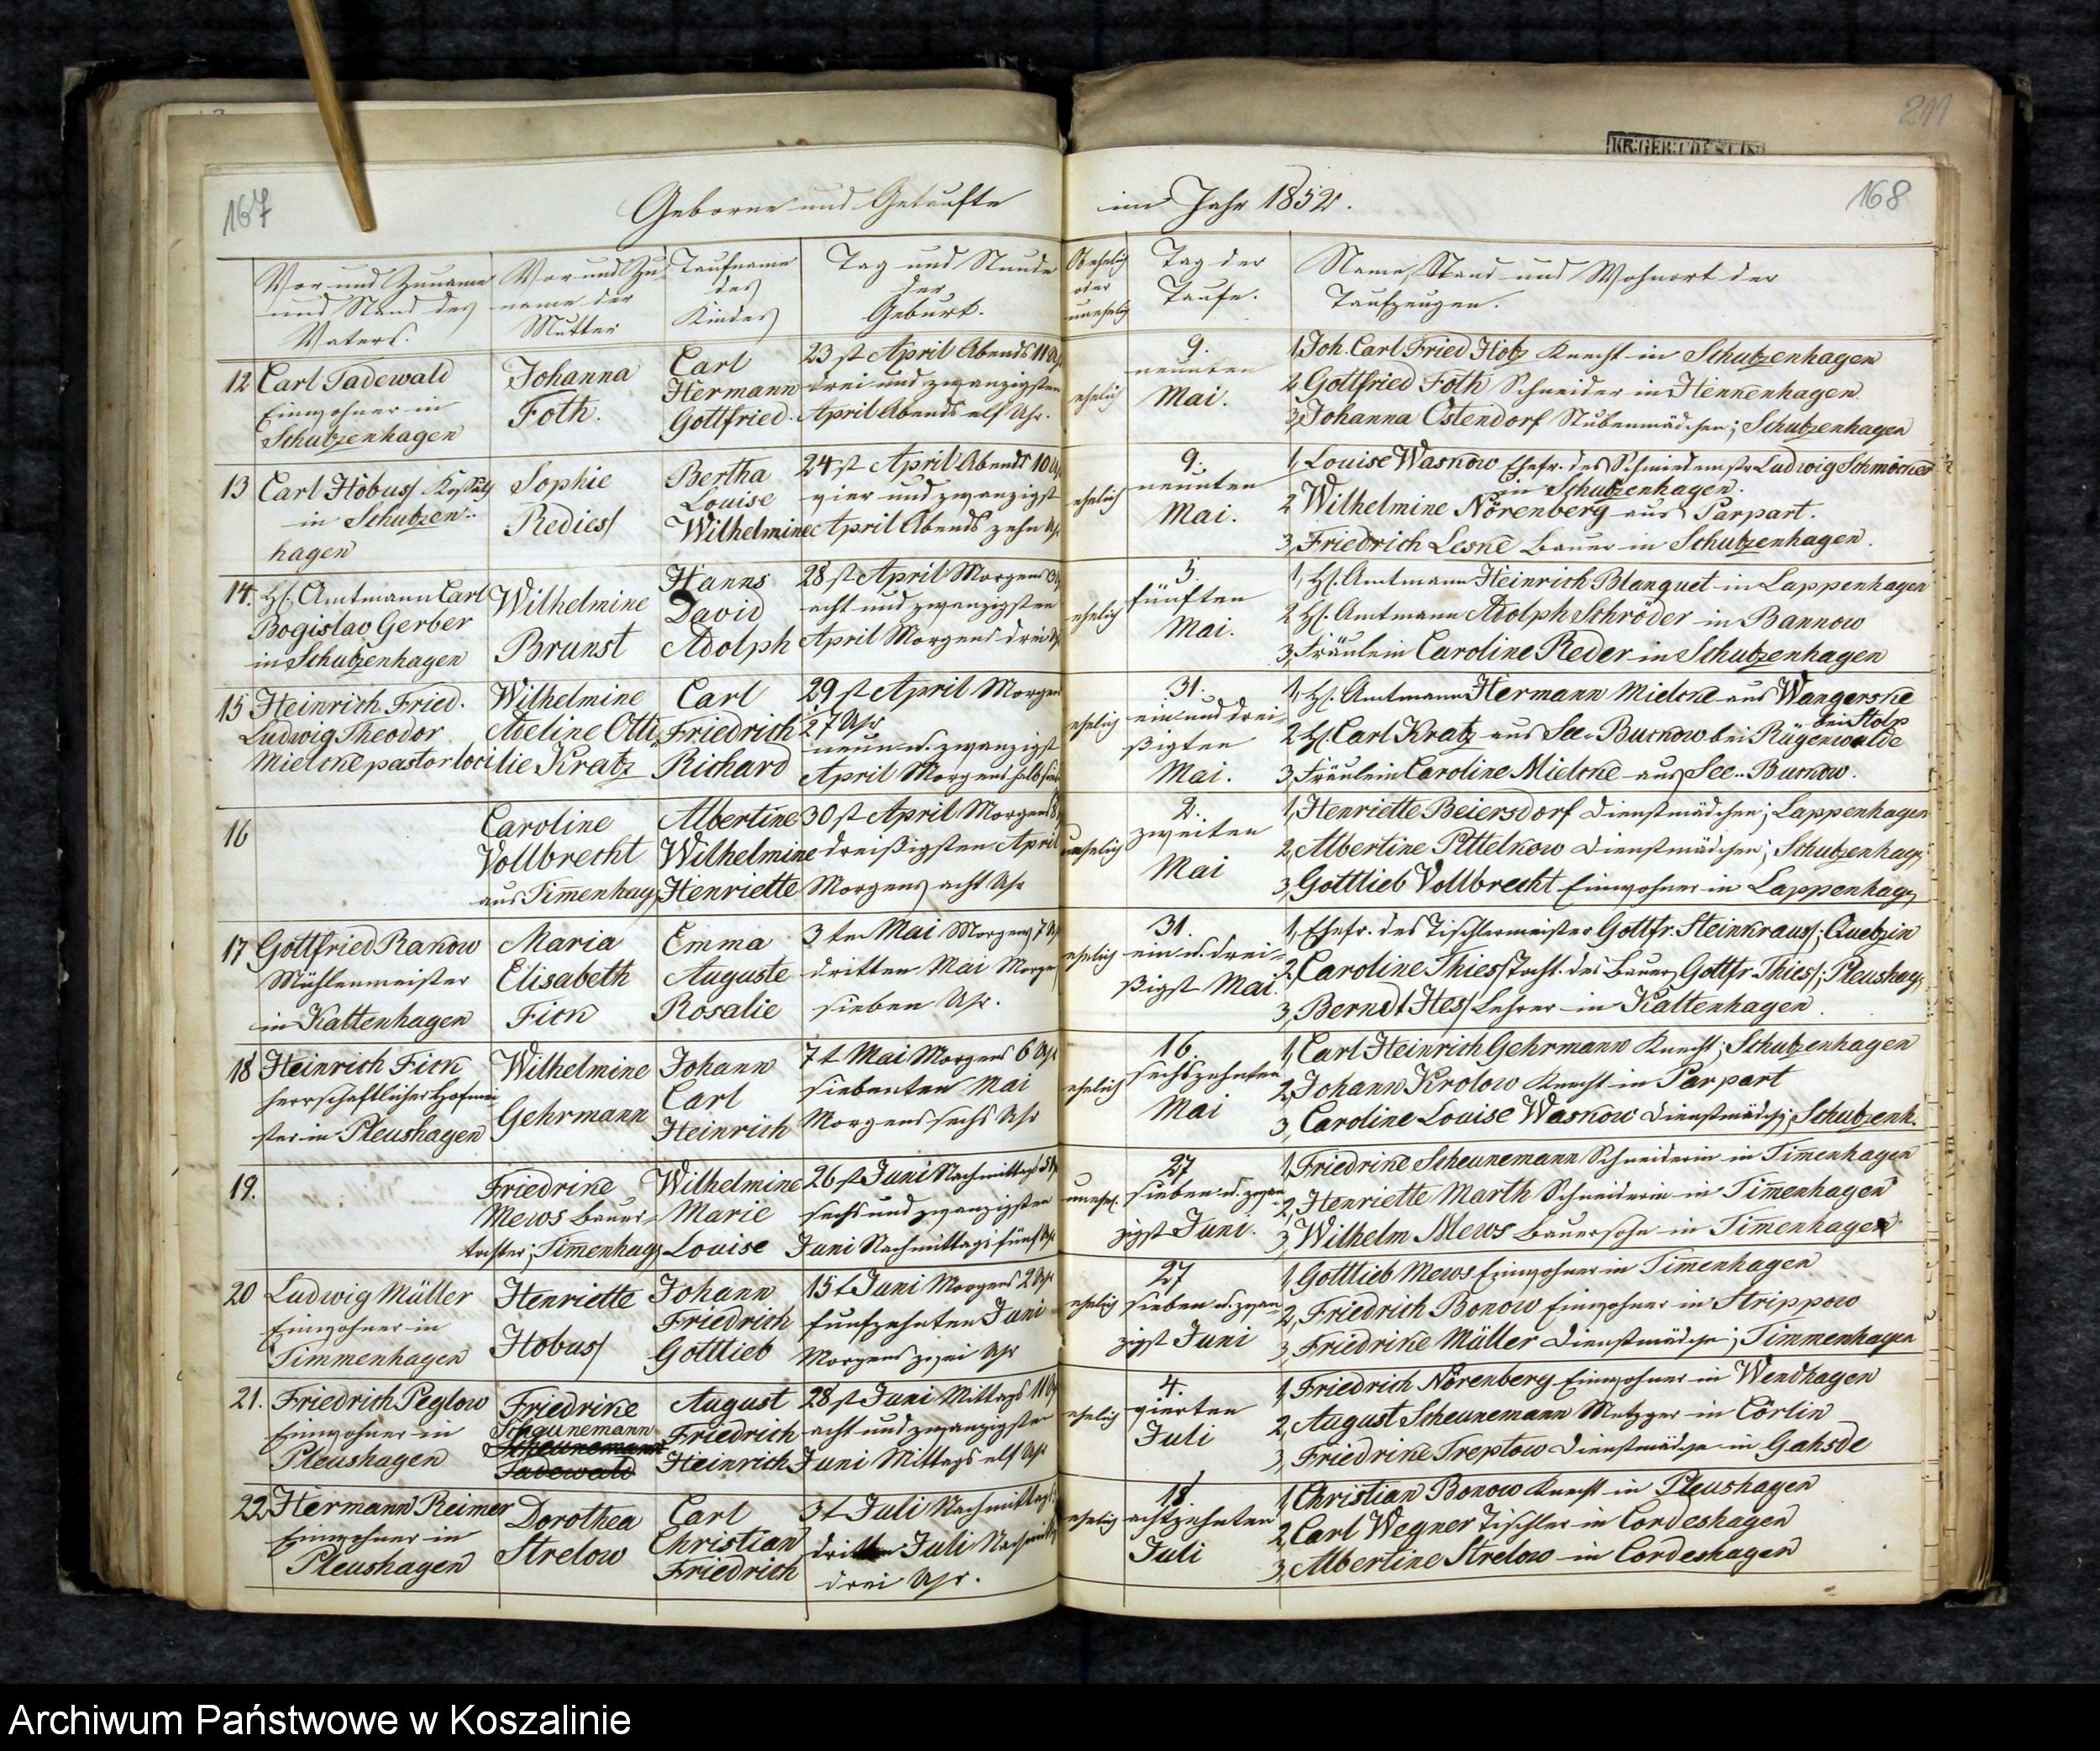 167
Geborne und Getaufte
im Jahr 1852.
168
211
Vor und Zuname und Stand des Vaters.
Vor und Zuname der Mutter
Taufname des Kindes
Tag und Stunde der Geburt.
Ob ehelich oder unehelig
Tag der Taufe.
Name, Stand und Wohnort der Taufzeugen.
12 Carl Tadewald
Einwohner in
Schulzenhagen
Johanna
Foth.
Carl
Hermann
Gottfried.
23st April Abends 11 Uhr
drei und zwanzigsten
April Abends elf Uhr.
ehelich
9.
neunten
Mai.
1, Joh. Carl Fried Hotz Knecht in Schulzenhagen
2 Gottfried Foth Schneider in Henkenhagen
3, Johanna Ostendorf Stubenmädchen; Schulzenhagen
13 Carl Hobus
in Schulzen-
hagen
Sophie
Redies
Bertha
Louise
Wilhelmine
24st April Abends 10 Uhr
vier und zwanzigst
April Abends zehn Uhr
ehelich
9.
neunten
Mai.
1, Louise Waskow Ehefr. des Schmiedemstr Ludwig Schmöcker
in Schulzenhagen.
2 Wilhelmine Nörenberg aus Parpart.
3, Friedrich Leske Bauer in Schulzenhagen.
14. H. Amtmann Carl
Bogislav Gerber
in Schulzenhagen
Wilhelmine
Brunst
Hanns
David
Adolph
28st April Morgens 3 Uhr
acht und zwanzigsten
April Morgens drei Uhr
ehelich
5.
fünften
Mai.
1, H. Amtmann Heinrich Blanquet in Lappenhagen
2 H. Amtmann Adolph Schröder in Bannow
3, Fräulein Caroline Reder in Schulzenhagen
15 Heinrich Fried.
Ludwig Theodor
Mielcke pastor loci
Wilhelmine
Adeline Otti-
lie Kratz
Carl
Friedrich
Richard
29st April Morgens
½7 Uhr
neun u. zwanzigst
April Morgens halb
ehelich
31.
ein und drei-
ßigten
Mai.
1, H. Amtmann Hermann Mielcke aus Wangerske
bei Stolp
2 H. Carl Kratz aus See-Buckow bei Rügenwalde
3, Fräulein Caroline Mielcke aus See-Buckow.
16
Caroline
Vollbrecht
aus Timenhag
Albertine
Wilhelmine
Henriette
30st April Morgens 8
dreißigsten April
Morgens acht Uhr
unehelich
2.
zweiten
Mai
1, Henriette Beiersdorf Dienstmädchen; Lappenhagen
2, Albertine Pittelkow Dienstmädchen; Schulzenhag
3, Gottlieb Vollbrecht Einwohner in Lappenhag
17 Gottfried Rakow
Mühlenmeister
in Kaltenhagen
Maria
Elisabeth
Fick
Emma
Auguste
Rosalie
3ten Mai Morgens 7 Uhr
dritten Mai Morgens
sieben Uhr.
ehelich
31.
ein u. drei-
ßigst Mai.
1, Ehefr. des Tischlermeister Gottfr. Steinkraus; Quetzin
2, Caroline Thies Tocht. des Bauer Gottfr Thies; Pleushag
3, Berndt Hes Lehrer in Kaltenhagen.
18 Heinrich Fick
herrschaftlicher Hofmei-
ster in Pleushagen
Wilhelmine
Gehrmann
Johann
Carl
Heinrich
7t Mai Morgens 6 Uhr
siebenten Mai
Morgens sechs Uhr
ehelich
16.
sechszehnten
Mai
1, Carl Heinrich Gehrmann Knecht; Schulzenhagen
2, Johann Krolow Knecht in Parpart
3, Caroline Louise Waskow Dienstmädch; Schulzenh.
19.
Friedrike
Mews Bauer-
tochter; Timenhag
Wilhelmine
Marie
Louise
26st Juni Nachmittags 5 Uhr
sechs und zwanzigsten
Juni Nachmittags fünf Uhr
unehel.
27
sieben u. zwan-
zigst Juni.
1, Friedrike Scheunemann Schneiderin in Timenhagen
2, Henriette Marth Schneiderin in Timenhagen
3, Wilhelm Mews Bauersohn in Timenhagen
20 Ludwig Müller
Einwohner in
Timmenhagen
Henriette
Hobus
Johann
Friedrich
Gottlieb
15t Juni Morgens 2 Uhr
funfzehnten Juni
Morgens zwei Uhr
ehelig
27
sieben u. zwan-
zigst Juni
1, Gottlieb Mews Einwohner in Timenhagen
2, Friedrich Bonow Einwohner in Strippow
3, Friedrike Müller Dienstmädchen; Timmenhagen
21. Friedrich Peglow
Einwohner in
Pleushagen
Friedrike
Scheunemann
Scheunemann
Tadewald
August
Friedrich
Heinrich
28st Juni Mittags 11 Uhr
acht und zwanzigsten
Juni Mittags elf Uhr
ehelich
4.
vierten
Juli
1, Friedrich Nörenberg Einwohner in Wendhagen
2, August Scheunemann Metzger in Cörlin
3, Friedrike Treptow Dienstmädchen in Gahsde
22 Hermann Reimer
Einwohner in
Pleushagen
Dorothea
Strelow
Carl
Christian
Friedrich
3t Juli Nachmittags
dritten Juli Nachmittg
drei Uhr.
ehelig
18.
achtzehnten
Juli
1, Christian Bonow Knecht in Pleushagen
2, Carl Wegner Tischler in Cordeshagen
3, Albertine Strelow in Cordeshagen
Archiwum Państwowe w Koszalinie